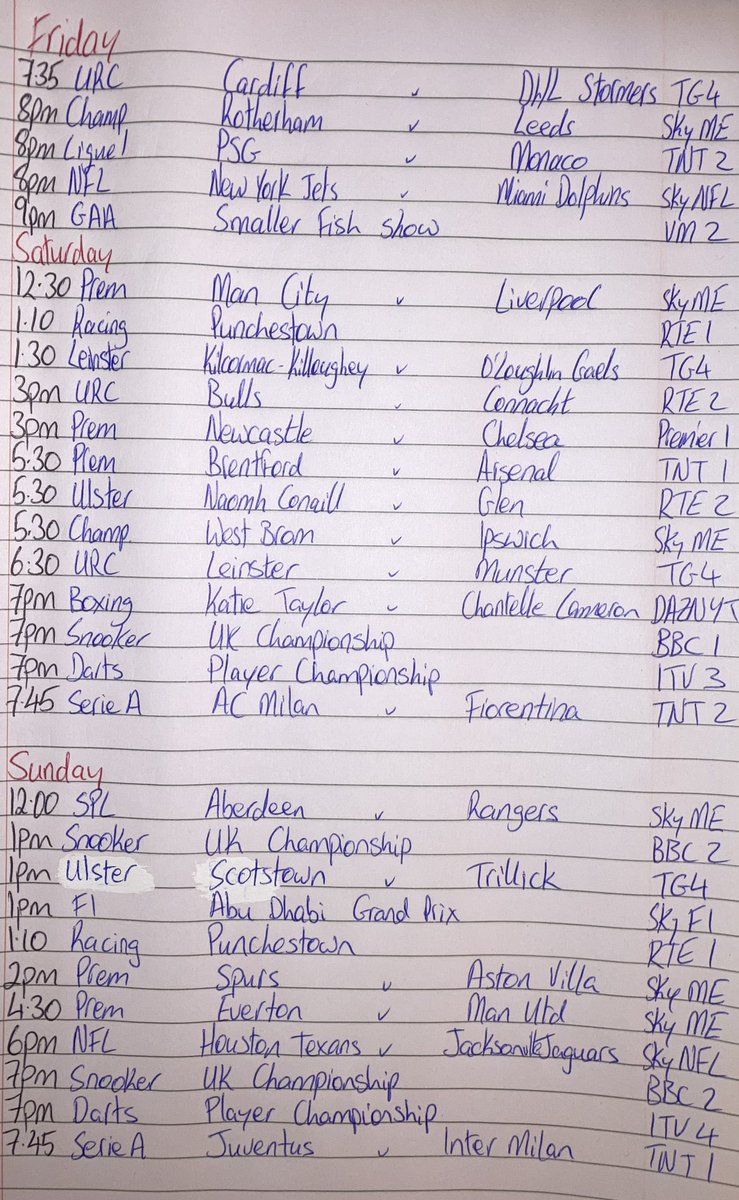 Friday
7.35 URC Cardiff v DHL Stormers TG4
8pm Champ Rotherham v Leeds Sky ME
8pm Ligue 1 PSG v Monaco TNT 2
8pm NFL New York Jets v Miami Dolphins Sky NFL
9pm GAA Smaller Fish Show VM 2
Saturday
12.30 Prem Man City v Liverpool Sky ME
1.10 Racing Punchestown RTE 1
1.30 Leinster Kilcormac-Killoughey v O'Loughlin Gaels TG4
3pm URC Bulls v Connacht RTE 2
3pm Prem Newcastle v Chelsea Premier 1
5.30 Prem Brentford v Arsenal TNT 1
5.30 Ulster Naomh Conaill v Glen RTE 2
5.30 Champ West Brom v Ipswich Sky ME
6:30 URC Leinster v Munster TG4
7pm Boxing Katie Taylor v Chantelle Cameron DAZNYT
7pm Snooker UK Championship BBC 1
7pm Darts Player Championship ITV 3
7.45 Serie A AC Milan v Fiorentina TNT 2
Sunday
12:00 SPL Aberdeen v Rangers Sky ME
1pm Snooker UK Championship BBC 2
1pm Ulster Scotstown v Trillick TG4
1pm F1 Abu Dhabi Grand Prix Sky F1
1.10 Racing Punchestown RTE 1
2pm Prem Spurs v Aston Villa Sky ME
4:30 Prem Everton v Man Utd Sky ME
6pm NFL Houston Texans v Jacksonville Jaguars Sky NFL
7pm Snooker UK Championship BBC 2
7pm Darts Player Championship ITV 4
7.45 Serie A Juventus v Inter Milan TNT 1